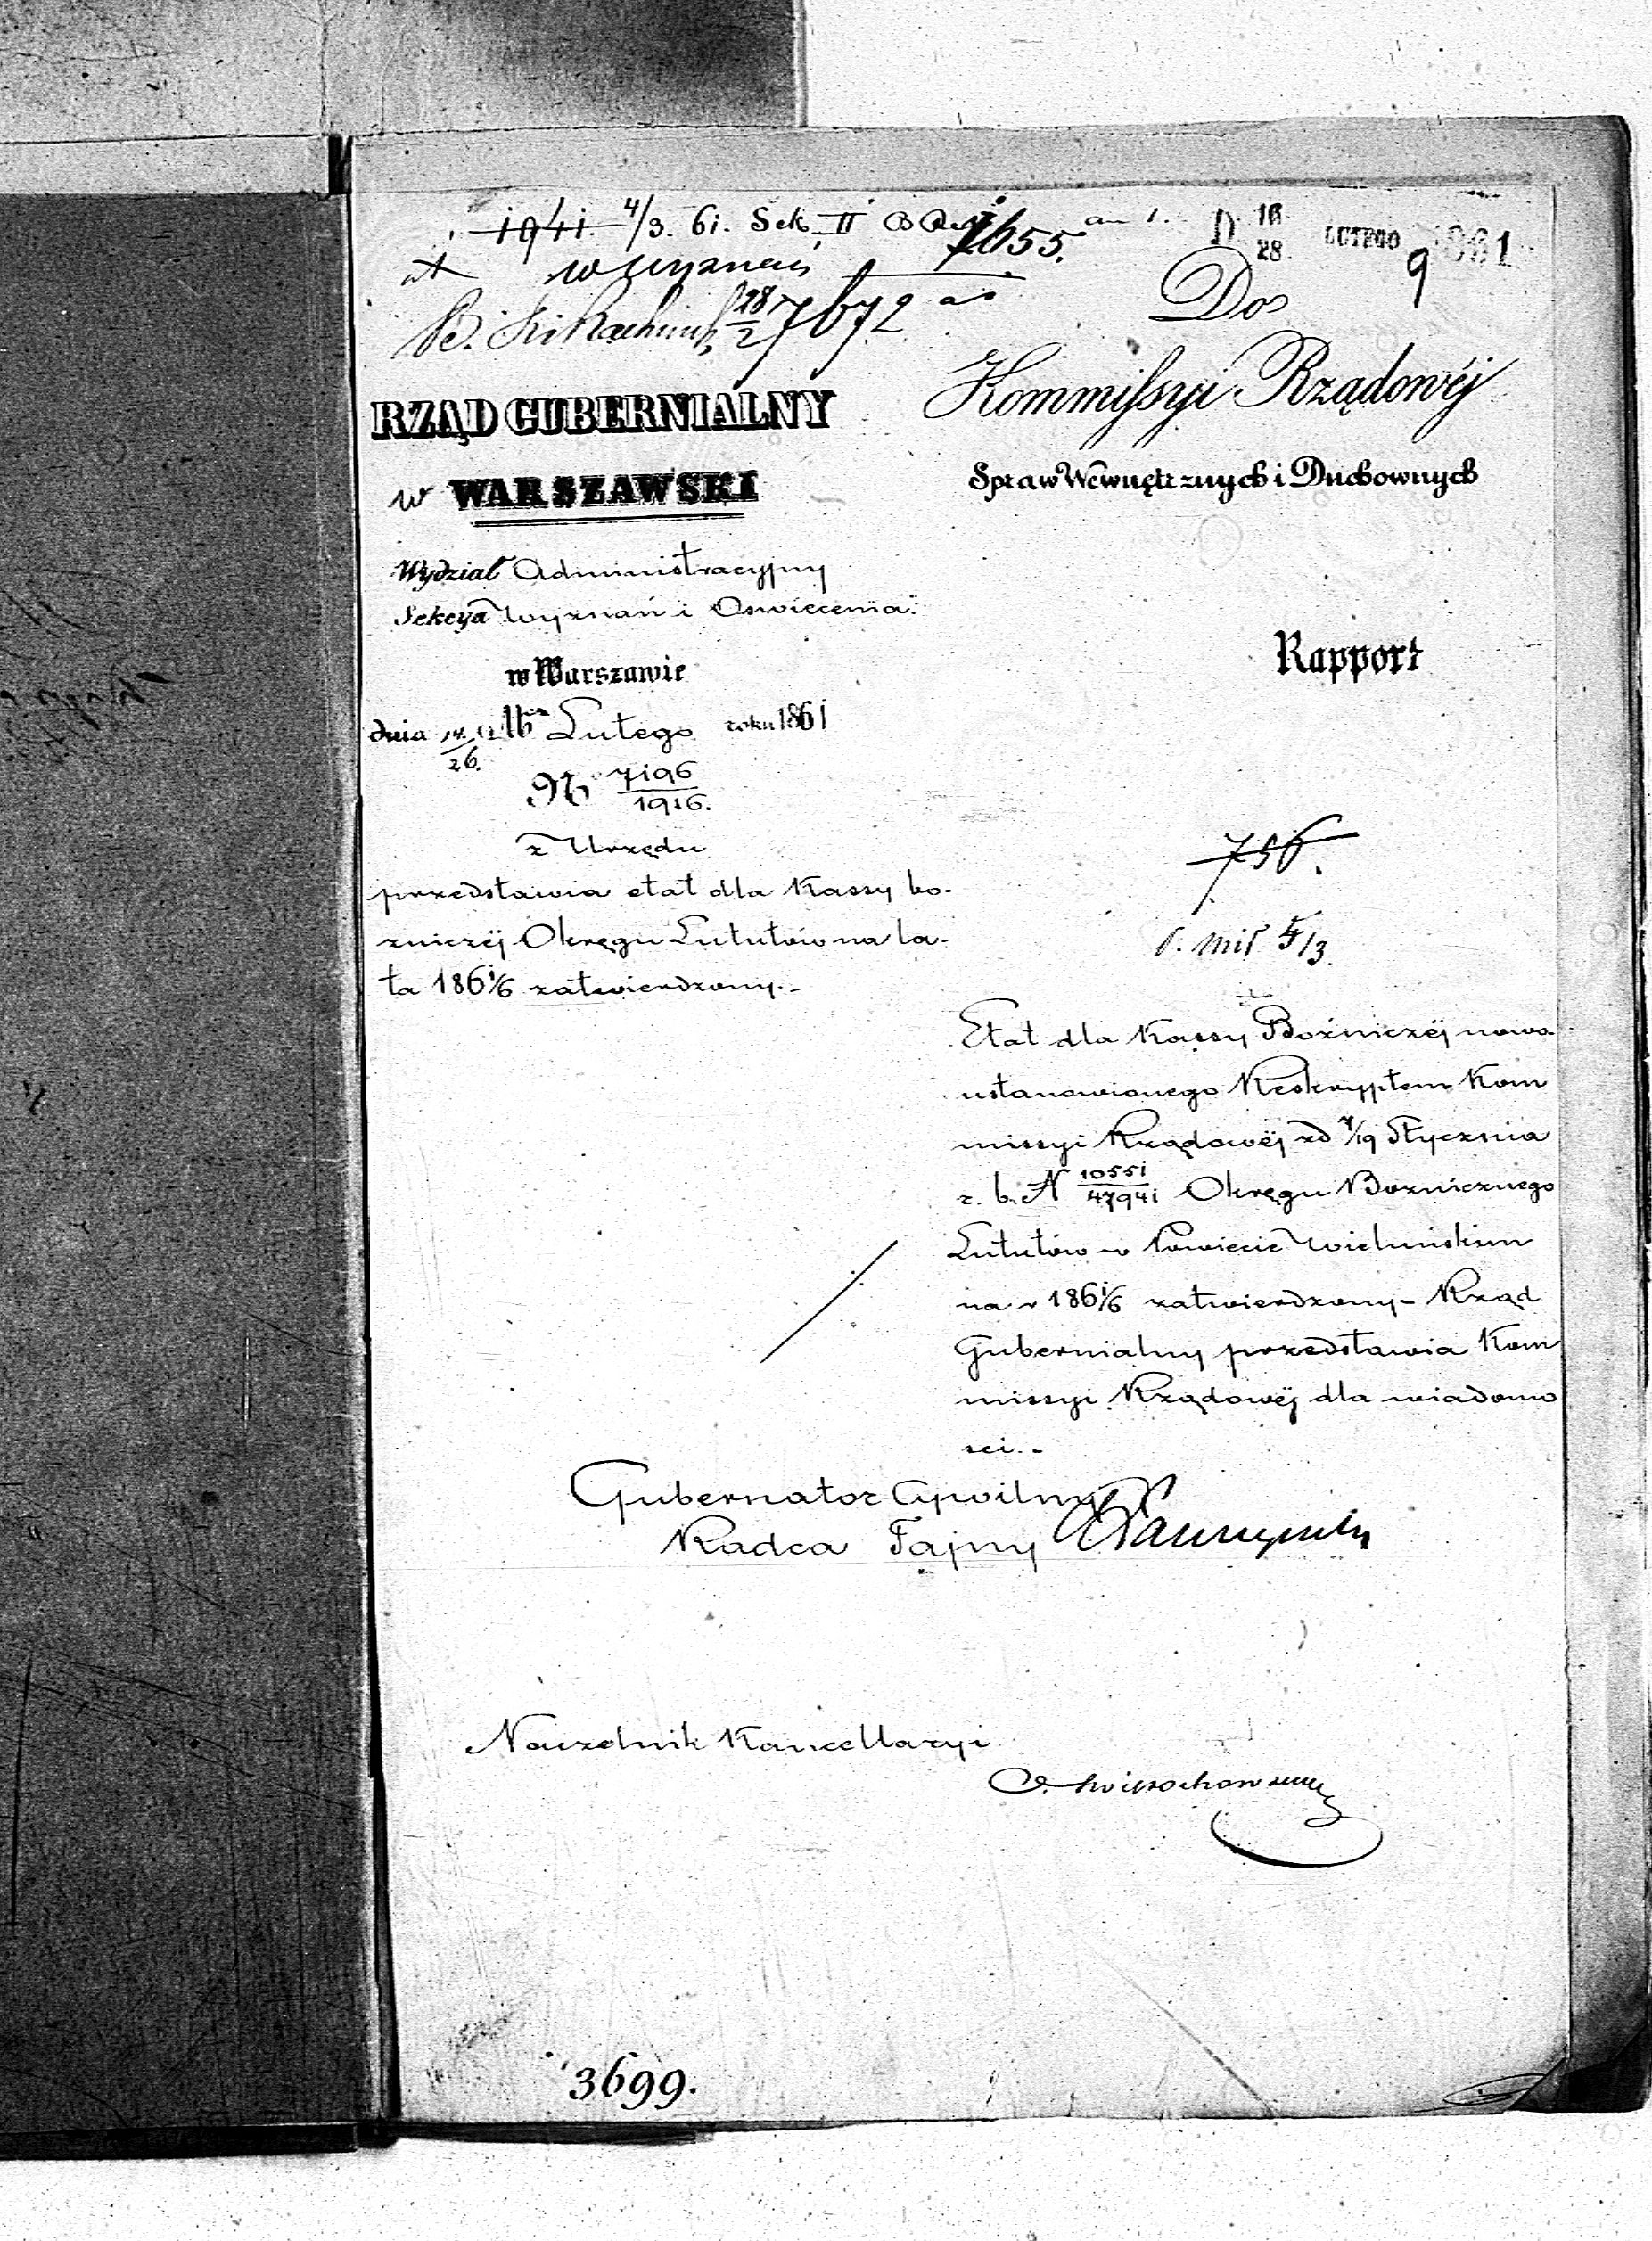 1941. 4/3. 61. Sek. II
7655.
D 16/28 LUTEGO 1861
9
28/2 7672
Do
Kommissyi Rządowéj
Spraw Wewnętrznych i Duchownych
RZĄD GUBERNIALNY
w WARSZAWSKI
Wydział Administracyjny
Sekcya Wyznań i Oswiecenia.
w Warszawie
dnia 14/26. Lutego roku 1861
№ 7196/1916.
z Urzędu
przedstawia etat dla Kassy bo-
zniczéj Okręgu Lututów na la-
ta 1861/6 zatwierdzony.-
Rapport
756.
5/3.
Etat dla Kassy Bożniczéj nowo
ustanowionego Reskryptem Kom
missyi Rządowéj zd 7/19 Stycznia
r. b. N 10551/47941 Okręgu Boznicznego
Lututów w Powiecie Wieluńskim
na r 1861/6 zatwierdzony- Rząd
Gubernialny przedstawia Kom
missyi Rządowéj dla wiadomo
sci.-
Gubernator Cywilny
Radca Tajny
Naczelnik Kancellaryi
3699.